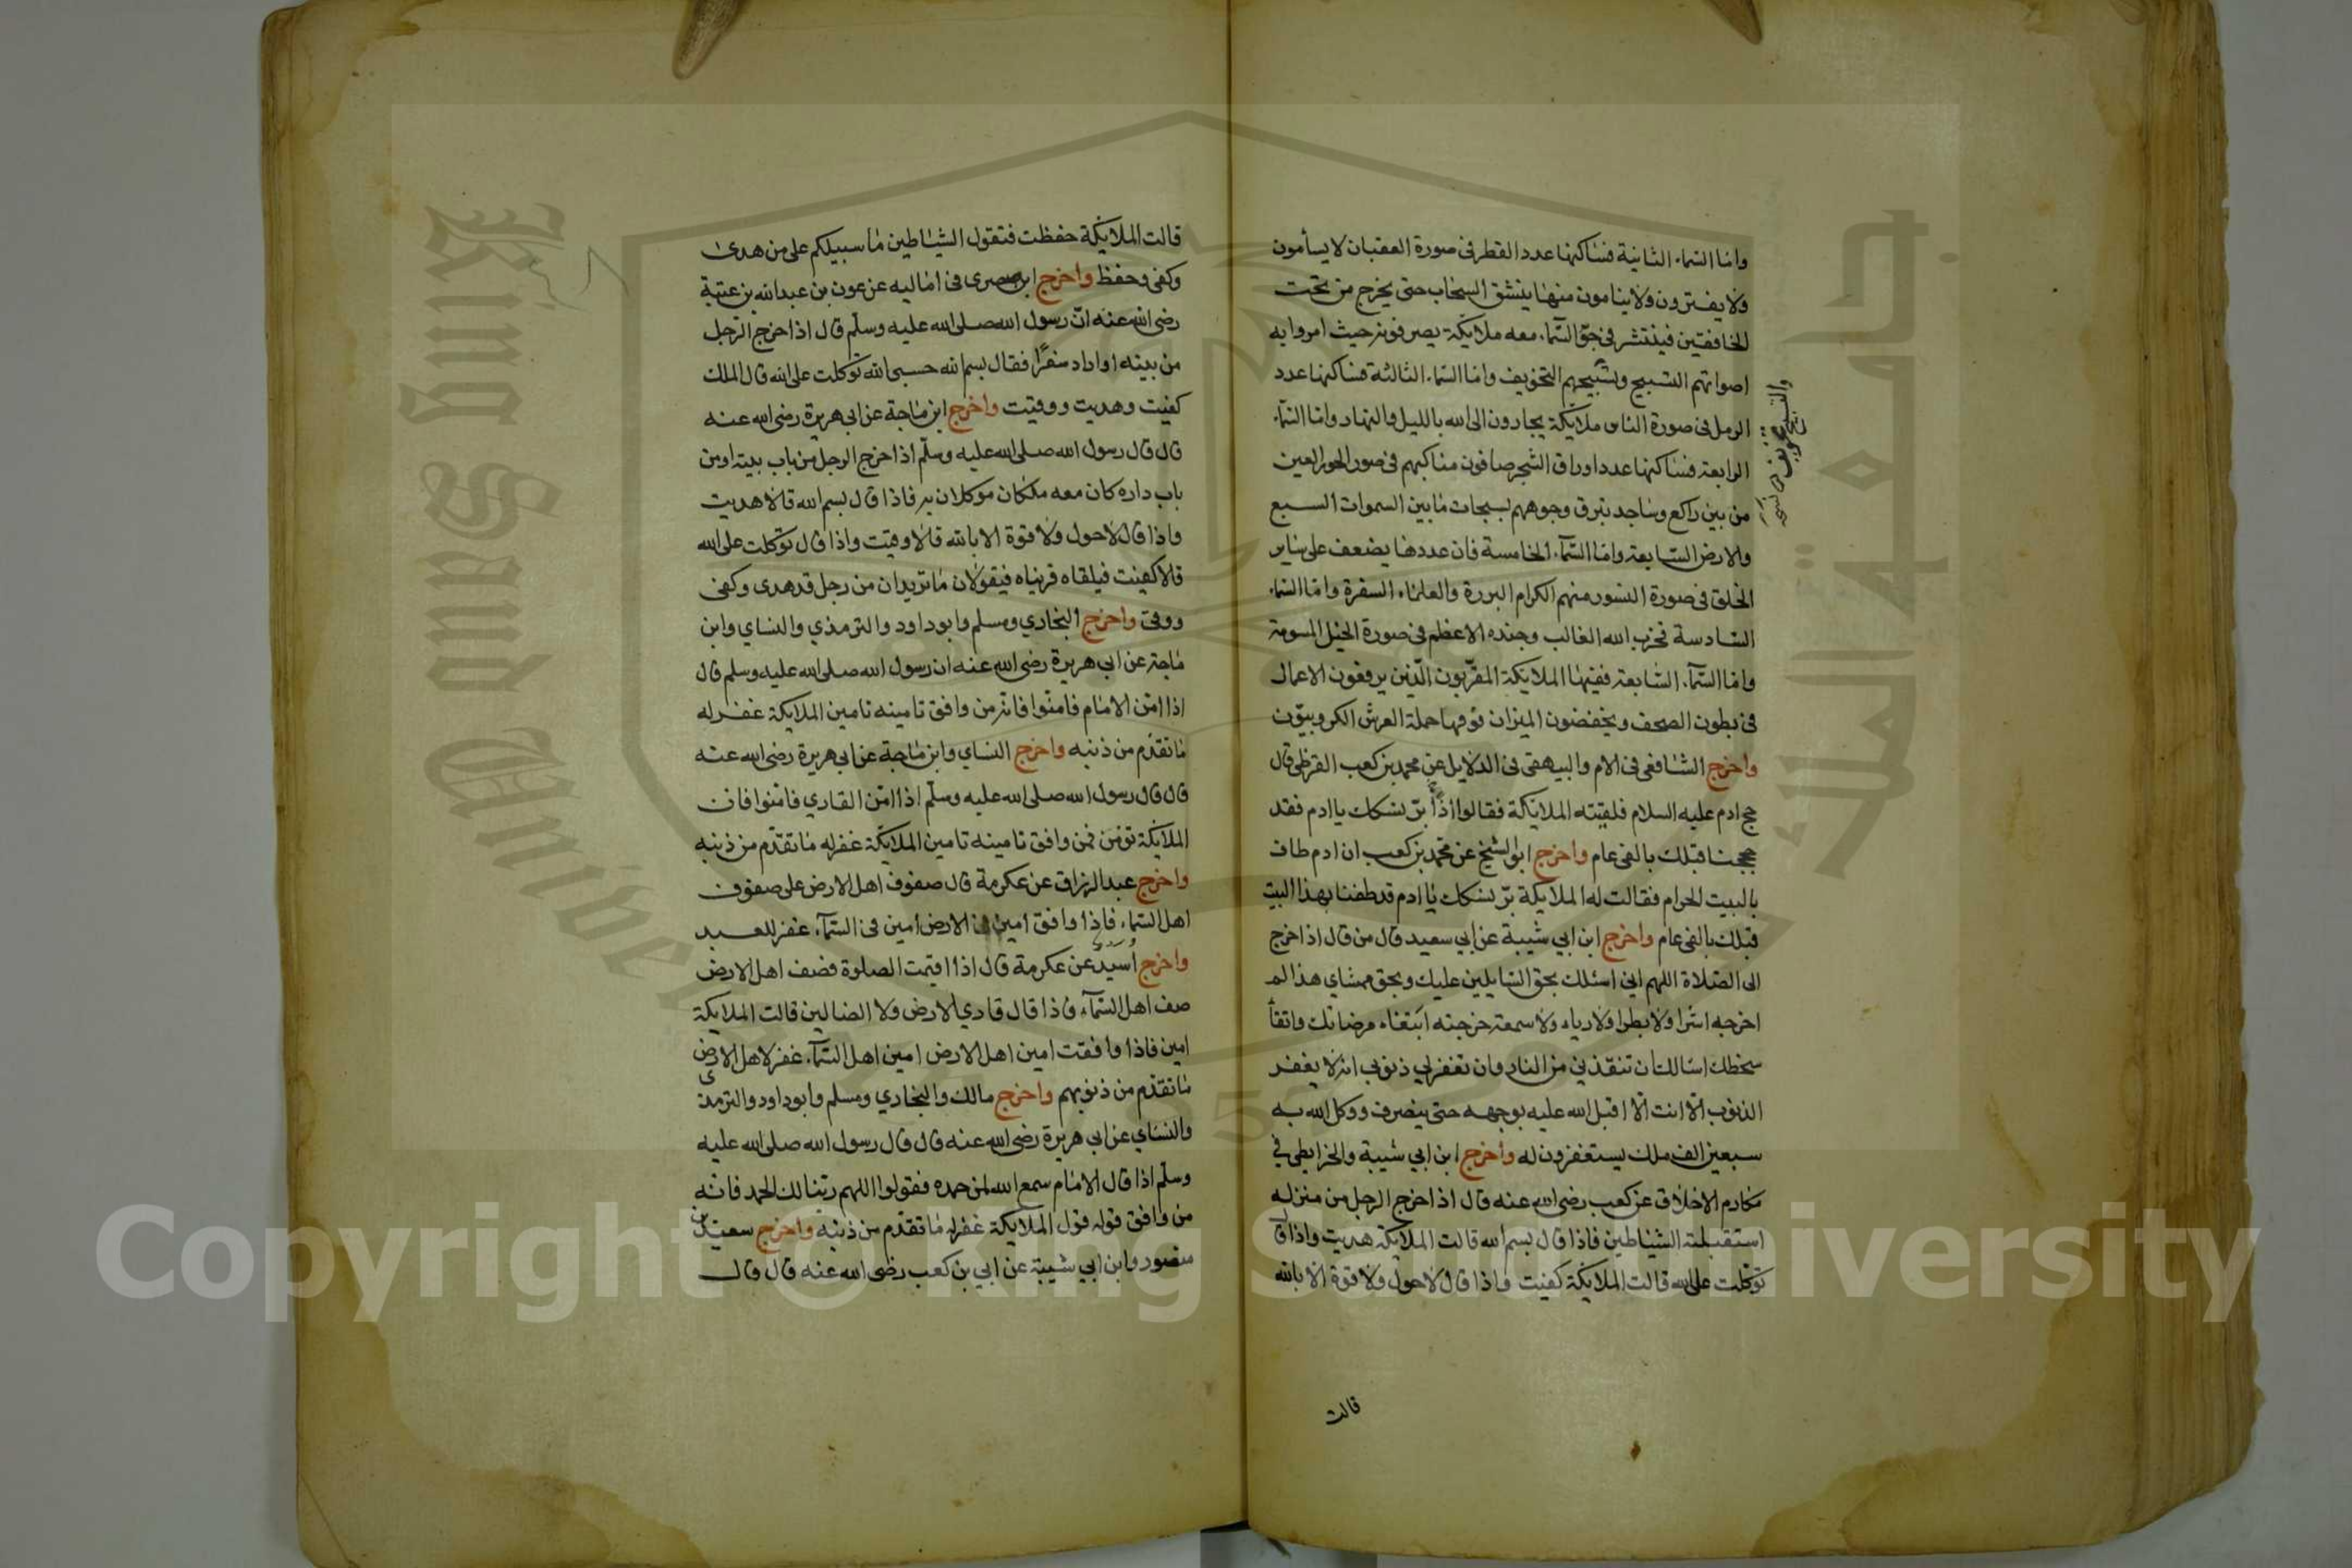 واما السماء الثانية فساكنها عدد القطر فى صورة العقبان لا يسأمون
ولا يفترون ولا ينامون منها ينشق السحاب حتى يخرج من تحت
الخافقين فينتشر فى جو السماء معه ملايكة يصرفونه حيث امروا به
اصواتهم التسبيح وتسبيحهم التخويف واما السماء الثالثة فساكنها عدد
الرمل فى صورة الناس ملايكة يجارون الى الله بالليل والنهار واما السماء
الرابعة فساكنها عدد اوراق الشجر صافون مناكبهم فى صور الحور العين
من بين راكع وساجد تبرق وجوههم بسبحات ما بين السموات السبع
والارض السابعة واما السماء الخامسة فان عددها يضعف على ساير
الخلق فى صورة النسور منهم الكرام البررة والعلماء السفرة واما السماء
السادسة فحزب الله الغالب وجنده الاعظم فى صورة الخيل المسومة
واما السماء السابعة ففيها الملايكة المقربون الذين يرفعون الاعمال
فى بطون الصحف ويخفضون الميزان فوقها حملة العرش الكروبيون
واخرج الشافعى فى الام والبيهقى فى الدلايل عن محمد بن كعب القرظى قال
حج ادم عليه السلام فلقيته الملايكة فقالوا بر نسكك يا ادم فقد
حججنا قبلك بالفى عام واخرج ابو الشيخ عن محمد بن كعب ان ادم طاف
بالبيت الحرام فقالت له الملايكة بر نسكك يا ادم قد طفنا بهذا البيت
قبلك بالفى عام واخرج ابن ابي شيبة عن ابي سعيد قال من قال اذا خرج
الى الصلاة اللهم اني اسئلك بحق السايلين عليك وبحق ممشاي هذا لم
اخرجه اشرا ولا بطرا ولا رياء ولا سمعة خرجته ابتغاء مرضاتك واتقاء
سخطك اسالك ان تنقذني من النار وان تغفر لي ذنوبي انه لا يغفر
الذنوب الا انت الا اقبل الله عليه بوجهه حتى ينصرف ووكل الله به
سبعين الف ملك يستغفرون له واخرج ابن ابي شيبة والخرايطى في
مكارم الاخلاق عن كعب رضى الله عنه قال اذا خرج الرجل من منزله
استقبلته الشياطين فاذا قال بسم الله قالت الملايكة هديت واذا قال
توكلت على الله قالت الملايكة كفيت واذا قال لا حول ولا قوة الا بالله
قالت
قالت الملايكة حفظت فتقول الشياطين ما سبيلكم على من هدى
وكفى وحفظ واخرج ابن صصرى فى اماليه عن عون بن عبد الله بن عتبة
رضى الله عنه ان رسول الله صلى الله عليه وسلم قال اذا خرج الرجل
من بيته او اراد سفرا فقال بسم الله حسبى الله توكلت على الله قال الملك
كفيت وهديت ووقيت واخرج ابن ماجة عن ابى هريرة رضى الله عنه
قال قال رسول الله صلى الله عليه وسلم اذا خرج الرجل من باب بيته او من
باب داره كان معه ملكان موكلان به فاذا قال بسم الله قالا هديت
واذا قال لا حول ولا قوة الا بالله قالا وقيت واذا قال توكلت على الله
قالا كفيت فيلقاه قريناه فيقولان ما تريدان من رجل قد هدى وكفى
ووقى واخرج البخاري ومسلم وابو داود والترمذي والنساي وابن
ماجة عن ابى هريرة رضى الله عنه ان رسول الله صلى الله عليه وسلم قال
اذا امن الامام فامنوا فانه من وافق تامينه تامين الملايكة غفر له
ما تقدم من ذنبه واخرج النساي وابن ماجة عن ابى هريرة رضى الله عنه
قال قال رسول الله صلى الله عليه وسلم اذا امن القاري فامنوا فان
الملايكة تومن فمن وافق تامينه تامين الملايكة غفر له ما تقدم من ذنبه
واخرج عبد الرزاق عن عكرمة قال صفوف اهل الارض على صفوف
اهل السماء فاذا وافق امين فى الارض امين فى السماء غفر للعبد
واخرج اسيد عن عكرمة قال اذا اقيمت الصلوة فصف اهل الارض
صف اهل السماء فاذا قال قاري الارض ولا الضالين قالت الملايكة
امين فاذا وافقت امين اهل الارض امين اهل السماء غفر لاهل الارض
ما تقدم من ذنوبهم واخرج مالك والبخاري ومسلم وابو داود والترمذى
والنساي عن ابي هريرة رضى الله عنه قال قال رسول الله صلى الله عليه
وسلم اذا قال الامام سمع الله لمن حمده فقولوا اللهم ربنا لك الحمد فانه
من وافق قوله قول الملايكة غفر له ما تقدم من ذنبه واخرج سعيد بن
منصور وابن ابي شيبة عن ابي بن كعب رضى الله عنه قال قال
Copyright © King Saud University